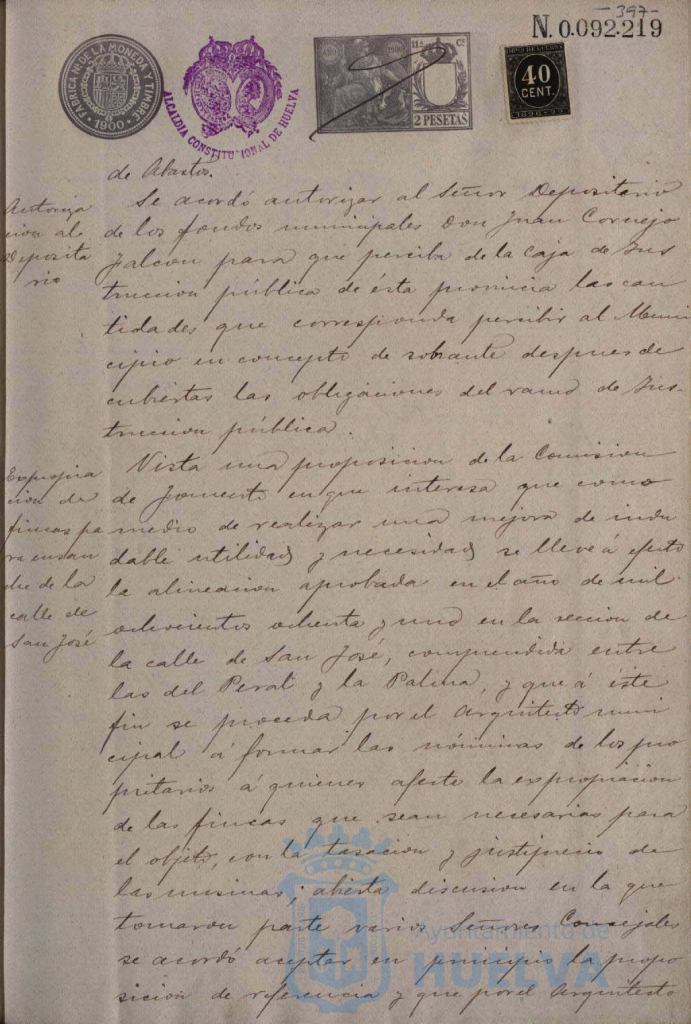 - 397 -
N. 0.092.219
FABRICA NAL DE LA MONEDA Y TIMBRE
1900
ALCALDIA CONSTITUCIONAL DE HUELVA
11.ª Cª
2 PESETAS
40
CENT.
de Abastos.
Autoriza
cion al
Deposita
rio
Se acordó autorizar al Señor Depositario
de los fondos municipales Don Juan Cornejo
Falcon para que perciba de la caja de Ins
truccion pública de ésta provincia las can
tidades que corresponda percibir al Muni
cipio en concepto de sobrante despues de
cubiertas las obligaciones del ramo de Ins-
truccion pública.
Expropia
cion de
fincas pa
ra ensan
che de la
calle de
San José
Vista una proposicion de la Comision
de Fomento en que interesa que como
medio de realizar una mejora de indu
dable utilidad y necesidad se lleve á efecto
la alineacion aprobada en el año de mil
ochocientos ochenta y uno en la seccion de
la calle de San José, comprendida entre
las del Peral y la Palma, y que á éste
fin se proceda por el Arquitecto muni
cipal á formar las nóminas de los pro
pietarios á quienes afecte la expropiacion
de las fincas que sean necesarias para
el objeto, con la tasacion y justiprecio de
las mismas; abierta discusion en la que
tomaron parte varios Señores Concejales
se acordó aceptar en principio la propo
sicion de referencia y que por el Arquitecto
Ayuntamiento de
HUELVA